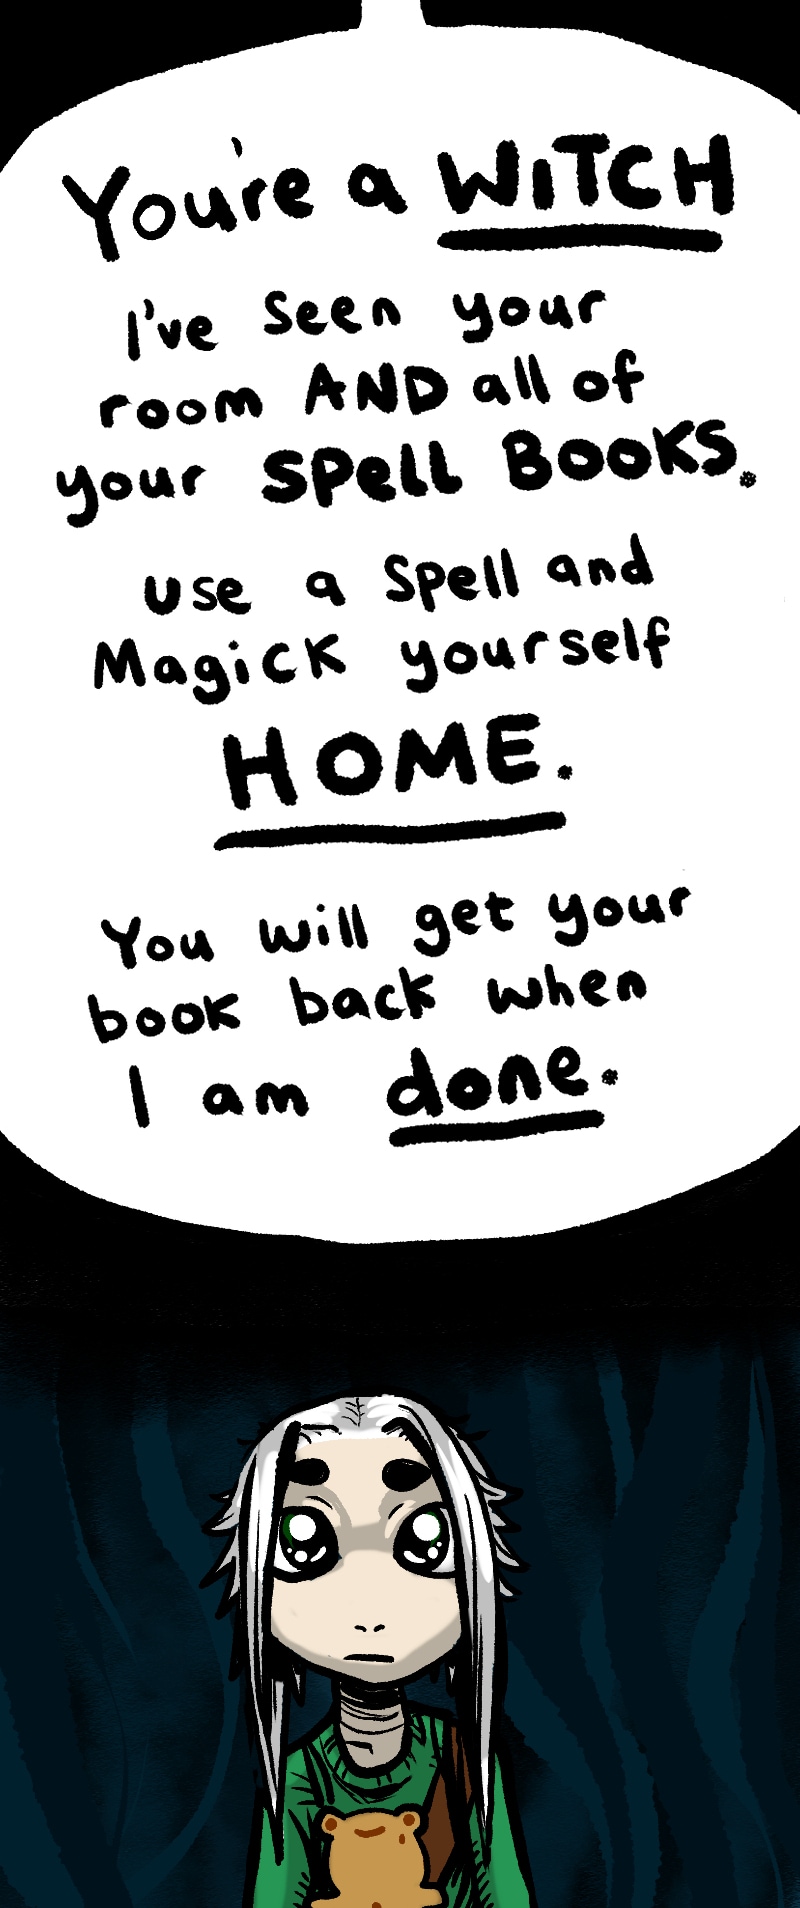 You're a WITCH
I've seen your
room AND all of
your SPell BOOKS.
use a Spell and
MagicK yourself
HOME.
You will get your
book back when
I am done.